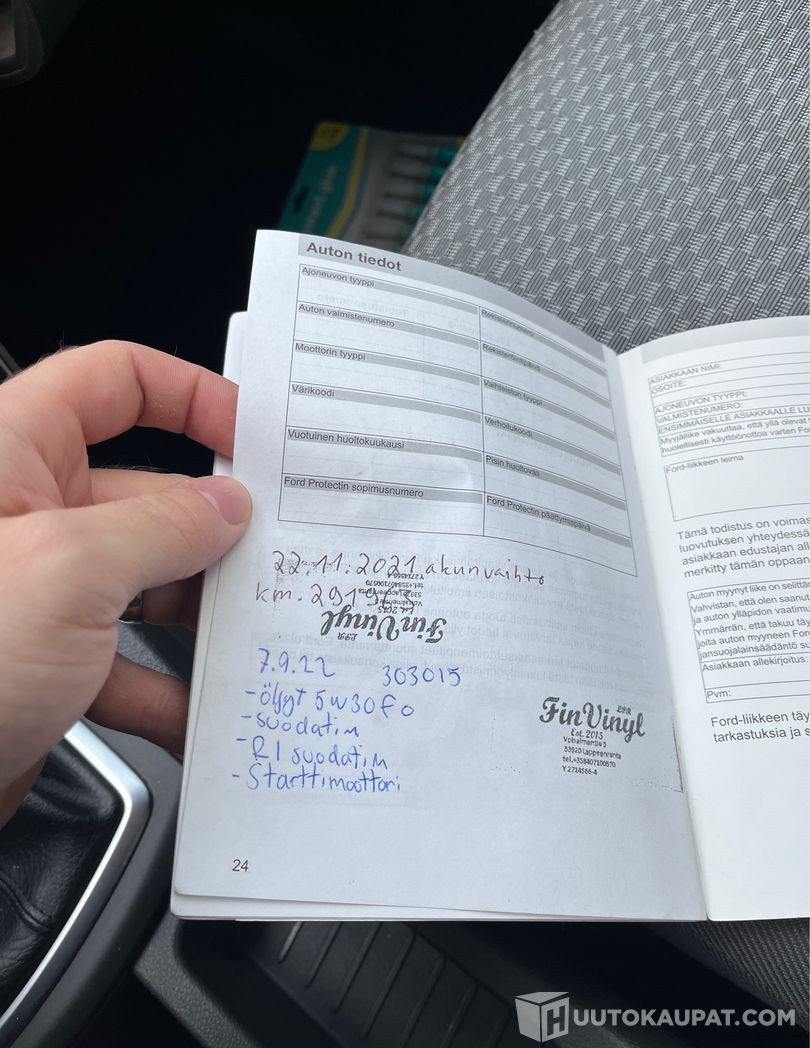 Auton tiedot
Ajoneuvon tyyppi
Rekisterinumero
Auton valmistenumero
Rekisteröintipäivä
Moottorin tyyppi
Vaihteiston tyyppi
Värikoodi
Verhoilukoodi
Vuotuinen huoltokuukausi
Pisin huoltoväli
Ford Protectin sopimusnumero
Ford Protectin päättymispäivä
22.11.2021 akunvaihto
km.
FinVinyl
LPR
Est. 2015
53920 Lappeenranta
tel.+358407100570
Y 2714566-4
7.9.22 303015
-öljyt 5w30 fo
-suodatin
-RI suodatin
-Starttimoottori
FinVinyl
LPR
Est. 2015
53920 Lappeenranta
tel.+358407100570
Y 2714566-4
24
ASIAKKAAN NIMI:
OSOITE:
AJONEUVON TYYPPI:
VALMISTENUMERO:
ENSIMMÄISELLE ASIAKKAALLE
Myyjäliike vakuuttaa, että yllä olevat
huolellisesti käyttöönottoa varten
Ford-liikkeen leima
Tämä todistus on
luovutuksen yhteydessä
asiakkaan edustajan
merkitty tämän oppaan
Auton myynyt liike on
Vahvistan, että olen saanut
ja auton ylläpidon
Ymmärrän, että takuu
joita auton myyneen
Asiakkaan
Pvm:
Ford-liikkeen
tarkastuksia ja
HUUTOKAUPAT.COM